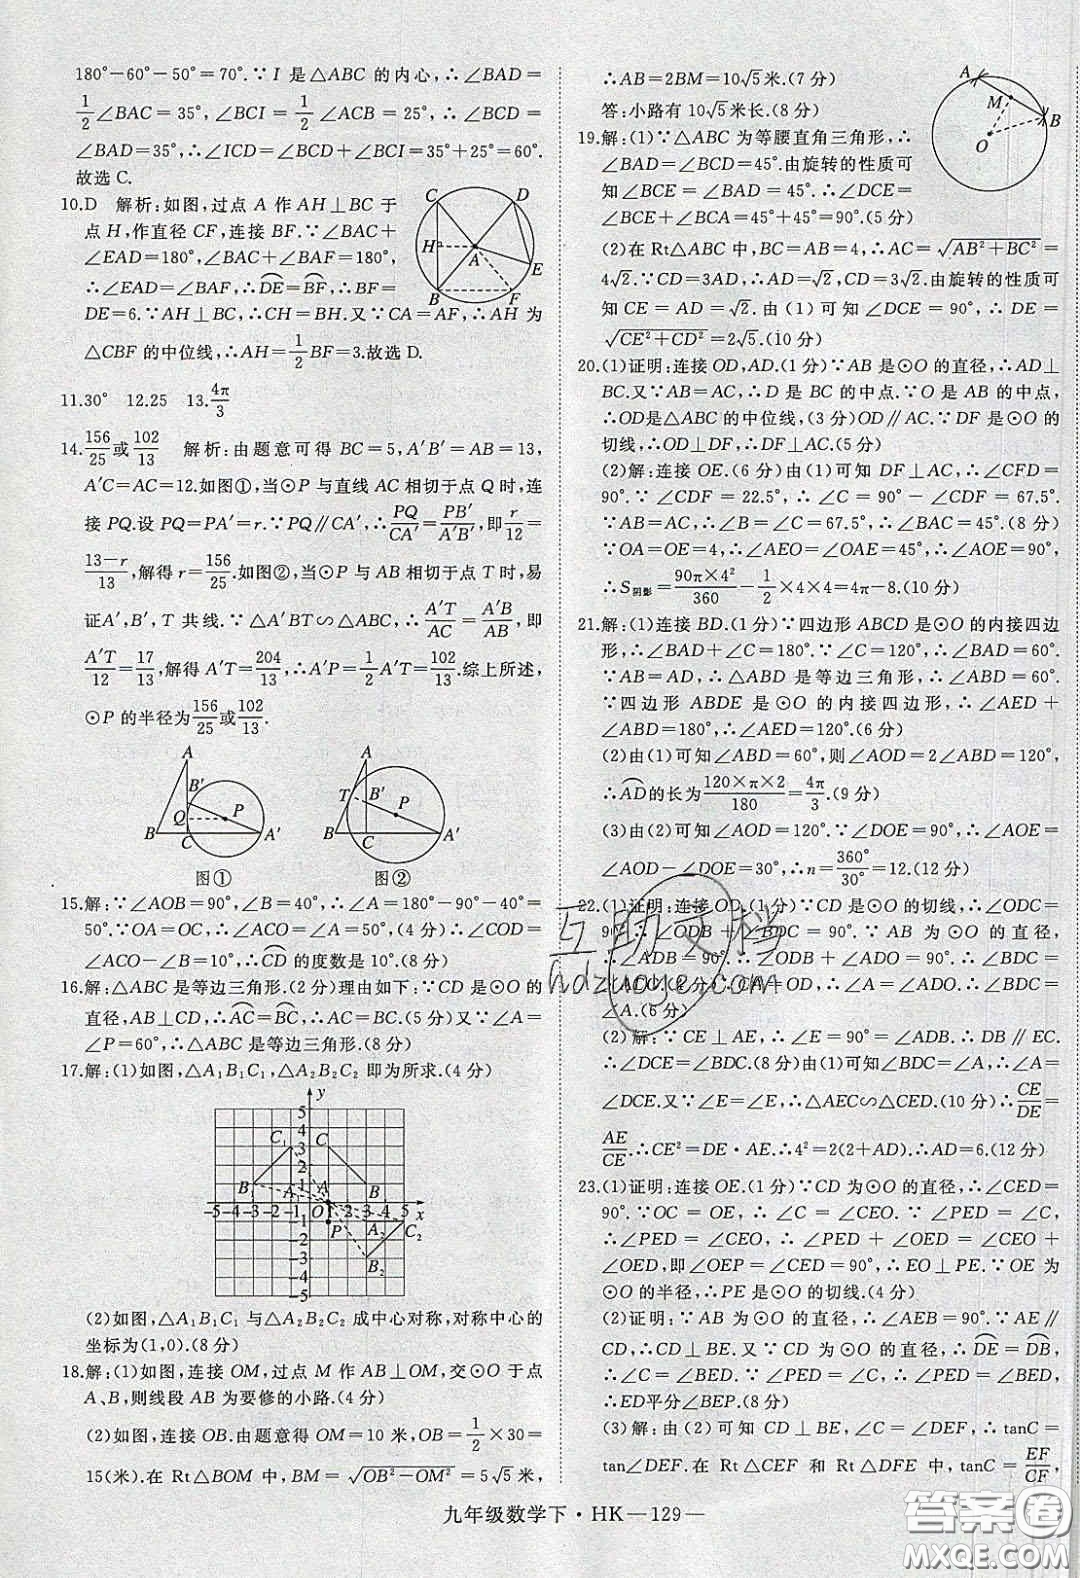 180°－60°－50°＝70°.∵I 是△ABC 的内心,∴∠BAD＝
1/2∠BAC＝35°,∠BCI＝1/2∠ACB＝25°,∴∠BCD＝
∠BAD＝35°,∴∠ICD＝∠BCD＋∠BCI＝35°＋25°＝60°.
故选C.
10.D 解析:如图,过点 A 作 AH⊥BC 于
点 H,作直径 CF,连接 BF.∵∠BAC＋
∠EAD＝180°,∠BAC＋∠BAF＝180°,
∴∠EAD＝∠BAF,∴DE＝BF,∴BF＝
DE＝6.∵AH⊥BC,∴CH＝BH.又∵CA＝AF,∴AH 为
△CBF 的中位线,∴AH＝1/2BF＝3.故选D.
C
D
H
A
E
B
F
11.30° 12.25 13.4π/3
14.156/25或102/13 解析:由题意可得 BC＝5,A′B′＝AB＝13,
A′C＝AC＝12.如图①,当⊙P 与直线 AC 相切于点 Q 时,连
接 PQ.设 PQ＝PA′＝r.∵PQ∥CA′,∴PQ/CA′＝PB′/A′B′,即r/12＝
13－r/13,解得 r＝156/25.如图②,当⊙P 与 AB 相切于点 T 时,易
证A′,B′,T 共线.∵△A′BT∽△ABC,∴A′T/AC＝A′B/AB,即
A′T/12＝17/13,解得 A′T＝204/13,∴r＝1/2A′T＝102/13.综上所述,
⊙P 的半径为156/25或102/13.
A
B′
Q
P
B
C
A′
图①
A
T
B′
P
B
C
A′
图②
15.解:∵∠AOB＝90°,∠B＝40°,∴∠A＝180°－90°－40°＝
50°.∵OA＝OC,∴∠ACO＝∠A＝50°,(4分)∴∠COD＝
∠ACO－∠B＝10°,∴CD的度数是10°.(8分)
16.解:△ABC 是等边三角形.(2分)理由如下:∵CD 是⊙O 的
直径,AB⊥CD,∴AC＝BC,∴AC＝BC.(5分)又∵∠A＝
∠P＝60°,∴△ABC 是等边三角形.(8分)
17.解:(1)如图,△A₁B₁C₁,△A₂B₂C₂ 即为所求.(4分)
y
5
4
3
2
1
C₁
C
B
A
A
B
－5－4－3－2－1 O 1 2 3 4 5 x
－1
－2
－3
－4
－5
P
A₂
C₂
B₂
(2)如图,△A₁B₁C₁ 与△A₂B₂C₂ 成中心对称,对称中心的
坐标为(1,0).(8分)
18.解:(1)如图,连接 OM,过点 M 作 AB⊥OM,交⊙O 于点
A、B,则线段 AB 为要修的小路.(4分)
(2)如图,连接 OB.由题意得 OM＝10 米,OB＝1/2×30＝
15(米).在 Rt△BOM 中,BM＝√(OB²－OM²)＝5√5米,
∴AB＝2BM＝10√5米.(7分)
答:小路有10√5米长.(8分)
A
M
B
O
19.解:(1)∵△ABC 为等腰直角三角形,∴
∠BAD＝∠BCD＝45°.由旋转的性质可
知∠BCE＝∠BAD＝45°.∴∠DCE＝
∠BCE＋∠BCA＝45°＋45°＝90°.(5分)
(2)在 Rt△ABC 中,BC＝AB＝4,∴AC＝√(AB²＋BC²)＝
4√2.∵CD＝3AD,∴AD＝√2,CD＝3√2.由旋转的性质可
知 CE＝AD＝√2.由(1)可知∠DCE＝90°,∴DE＝
√(CE²＋CD²)＝2√5.(10分)
20.(1)证明:连接 OD,AD.(1分)∵AB 是⊙O 的直径,∴AD⊥
BC.又∵AB＝AC,∴D 是 BC 的中点.∵O 是 AB 的中点,
∴OD是△ABC 的中位线,(3分)OD∥AC.∵DF 是⊙O 的
切线,∴OD⊥DF,∴DF⊥AC.(5分)
(2)解:连接 OE.(6分)由(1)可知 DF⊥AC,∴∠CFD＝
90°.∵∠CDF＝22.5°,∴∠C＝90°－∠CDF＝67.5°.
∵AB＝AC,∴∠B＝∠C＝67.5°,∴∠BAC＝45°.(8分)
∵OA＝OE＝4,∴∠AEO＝∠OAE＝45°,∴∠AOE＝90°,
∴S阴影＝90π×4²/360－1/2×4×4＝4π－8.(10分)
21.解:(1)连接 BD.(1分)∵四边形 ABCD 是⊙O 的内接四边
形,∴∠BAD＋∠C＝180°.∵∠C＝120°,∴∠BAD＝60°.
∵AB＝AD,∴△ABD 是等边三角形,∴∠ABD＝60°.
∵四边形 ABDE 是⊙O 的内接四边形,∴∠AED＋
∠ABD＝180°,∴∠AED＝120°.(6分)
(2)由(1)可知∠ABD＝60°,则∠AOD＝2∠ABD＝120°,
∴AD的长为120×π×2/180＝4π/3.(9分)
(3)由(2)可知∠AOD＝120°.∵∠DOE＝90°,∴∠AOE＝
∠AOD－∠DOE＝30°,∴n＝360°/30°＝12.(12分)
22.(1)证明:连接 OD.(1分)∵CD 是⊙O 的切线,∴∠ODC＝
90°,∴∠ODB＋∠BDC＝90°.∵AB 为⊙O 的直径,
∴∠ADB＝90°,∴∠ODB＋∠ADO＝90°,∴∠BDC＝
∠ADO.∵OA＝OD,∴∠A＝∠ADO.∴∠BDC＝
∠A.(6分)
(2)解:∵CE⊥AE,∴∠E＝90°＝∠ADB,∴DB∥EC.
∴∠DCE＝∠BDC.由(1)可知∠BDC＝∠A,∴∠A＝
∠DCE.又∵∠E＝∠E,∴△AEC∽△CED.(10分)∴CE/DE＝
AE/CE.∴CE²＝DE·AE.∴4²＝2(2＋AD).∴AD＝6.(12分)
23.(1)证明:连接 OE.(1分)∵CD 为⊙O 的直径,∴∠CED＝
90°.∵OC＝OE,∴∠C＝∠CEO.∵∠PED＝∠C,
∴∠PED＝∠CEO,∴∠PED＋∠OED＝∠CEO＋
∠OED,即∠OEP＝∠CED＝90°,∴EO⊥PE.∵OE 为
⊙O 的半径,∴PE 是⊙O 的切线.(4分)
(2)证明:∵AB 为⊙O 的直径,∴∠AEB＝90°.∵AE∥
CD,∴CD⊥BE.又∵CD 为⊙O 的直径,∴DE＝DB,
∴∠C＝∠BED.∵∠PED＝∠C,∴∠PED＝∠BED,
∴ED平分∠BEP.(8分)
(3)解:由(2)可知 CD⊥BE,∠C＝∠DEF,∴tanC＝
tan∠DEF.在 Rt△CEF 和 Rt△DFE 中,tanC＝EF/CF,
互助文档
hdzuoye.com
九年级数学下·HK—129—
答案圈
MXQE.COM